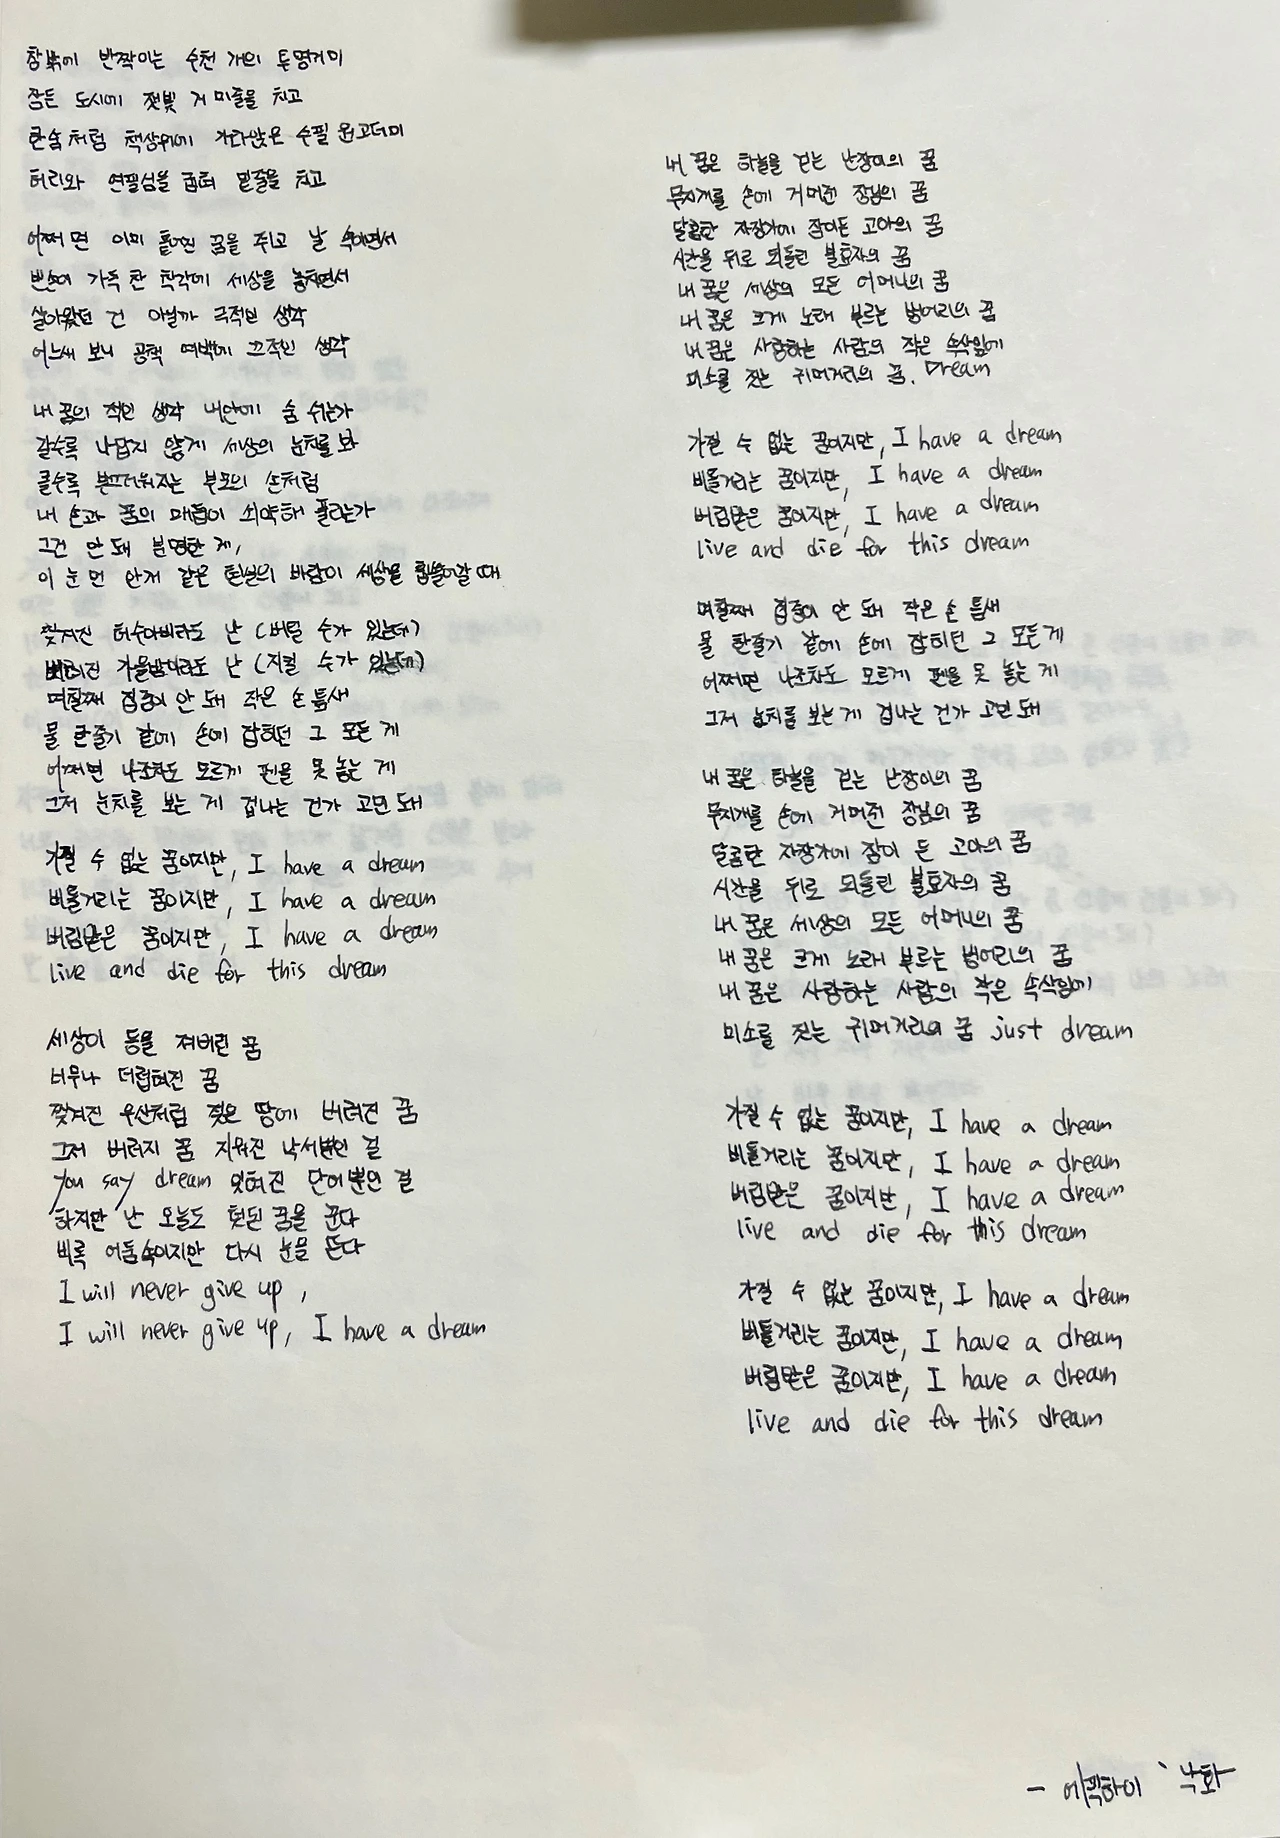 창밖에 반짝이는 수천 개의 투명거미
잠든 도시에 잿빛 거미줄을 치고
한숨처럼 책상위에 가라앉은 수필 원고더미
허리와 연필심을 굽혀 밑줄을 치고
어쩌면 이미 흩어진 꿈을 쥐고 날 속이면서
빈손이 가득 찬 착각에 세상을 놓치면서
살아왔던 건 아닐까 극적인 생각
어느새 보니 공책 여백에 끄적인 생각
내 꿈의 적인 생각 내안에 숨 쉬는가
갈수록 나답지 않게 세상의 눈치를 봐
클수록 부끄러워지는 부모의 손처럼
내 손과 꿈의 매듭이 쇠약해 풀리는가
그건 안 돼 분명한 게,
이 눈 먼 안개 같은 현실의 바람이 세상을 휩쓸어갈 때
찢겨진 허수아비라도 난 (버틸 수가 있는데)
버려진 가을밤이라도 난 (지킬 수가 있는데)
며칠째 집중이 안 돼 작은 손 틈새
물 한줄기 같에 손에 잡히던 그 모든 게
어쩌면 나조차도 모르게 펜을 못 놓는 게
그저 눈치를 보는 게 겁나는 건가 고민 돼
가질 수 없는 꿈이지만, I have a dream
비틀거리는 꿈이지만, I have a dream
버림받은 꿈이지만, I have a dream
live and die for this dream
세상이 등을 져버린 꿈
너무나 더럽혀진 꿈
찢겨진 우산처럼 젖은 땅에 버려진 꿈
그저 버려지 꿈 지워진 낙서뿐인 걸
you say dream 잊혀진 단어뿐인 걸
하지만 난 오늘도 헛된 꿈을 꾼다
비록 어둠속이지만 다시 눈을 뜬다
I will never give up,
I will never give up, I have a dream
내 꿈은 하늘을 걷는 난장이의 꿈
무지개를 손에 거머쥔 장님의 꿈
달콤한 자장가에 잠이든 고아의 꿈
시간을 뒤로 되돌린 불효자의 꿈
내 꿈은 세상의 모든 어머니의 꿈
내 꿈은 크게 노래 부르는 벙어리의 꿈
내 꿈은 사랑하는 사람의 작은 속삭임에
미소를 짓는 귀머거리의 꿈. Dream
가질 수 없는 꿈이지만, I have a dream
비틀거리는 꿈이지만, I have a dream
버림받은 꿈이지만, I have a dream
live and die for this dream
며칠째 집중이 안 돼 작은 손 틈새
물 한줄기 같에 손에 잡히던 그 모든게
어쩌면 나조차도 모르게 펜을 못 놓는 게
그저 눈치를 보는 게 겁나는 건가 고민 돼
내 꿈은 하늘을 걷는 난장이의 꿈
무지개를 손에 거머쥔 장님의 꿈
달콤한 자장가에 잠이 든 고아의 꿈
시간을 뒤로 되돌린 불효자의 꿈
내 꿈은 세상의 모든 어머니의 꿈
내 꿈은 크게 노래 부르는 벙어리의 꿈
내 꿈은 사랑하는 사람의 작은 속삭임에
미소를 짓는 귀머거리의 꿈 just dream
가질 수 없는 꿈이지만, I have a dream
비틀거리는 꿈이지만, I have a dream
버림받은 꿈이지만, I have a dream
live and die for this dream
가질 수 없는 꿈이지만, I have a dream
비틀거리는 꿈이지만, I have a dream
버림받은 꿈이지만, I have a dream
live and die for this dream
- 에픽하이 `낙화